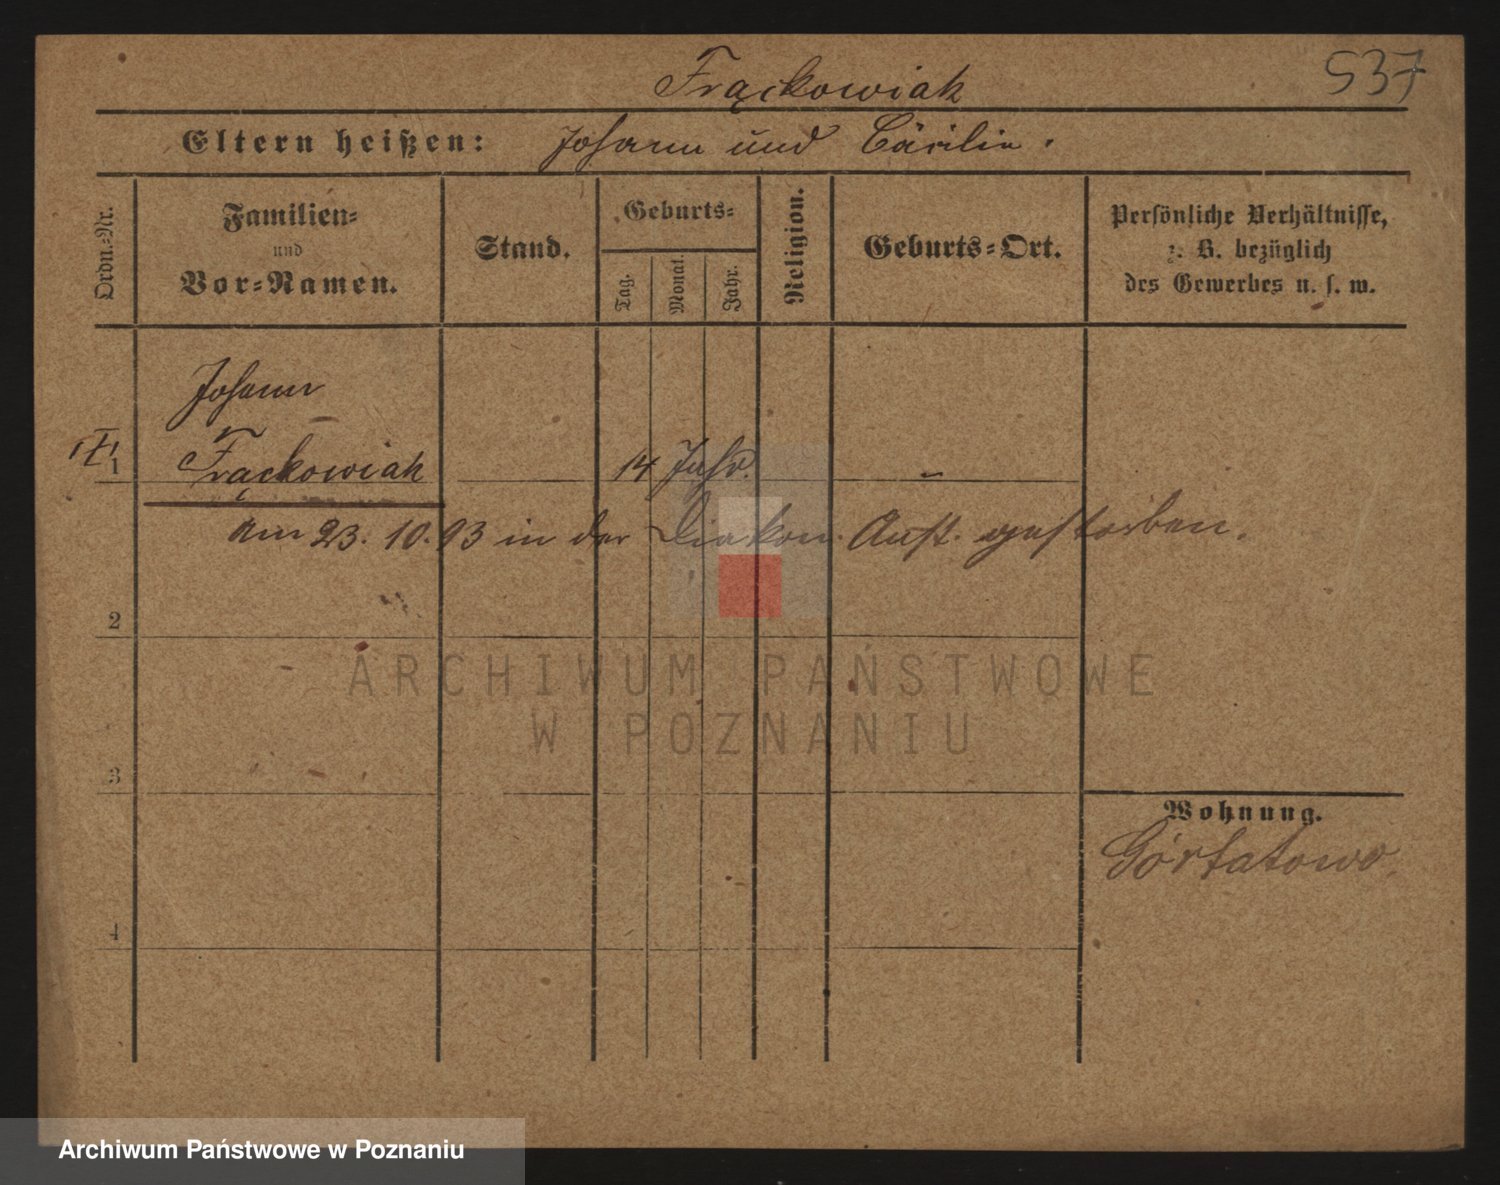 Frąckowiak
537
Eltern heißen: Johann und Cäcilie.
Ordn.-Nr.
Familien-
und
Vor-Namen.
Stand.
Geburts-
Tag.
Monat.
Jahr.
Religion.
Geburts-Ort.
Persönliche Verhältnisse,
z. B. bezüglich
des Gewerbes u. s. w.
Johann
1 Frąckowiak 14 Jahr. –
Am 23. 10. 93 in der Diakon. Anst. gestorben.
2
ARCHIWUM PAŃSTWOWE
W POZNANIU
3
Wohnung.
Górtatowo.
4
Archiwum Państwowe w Poznaniu